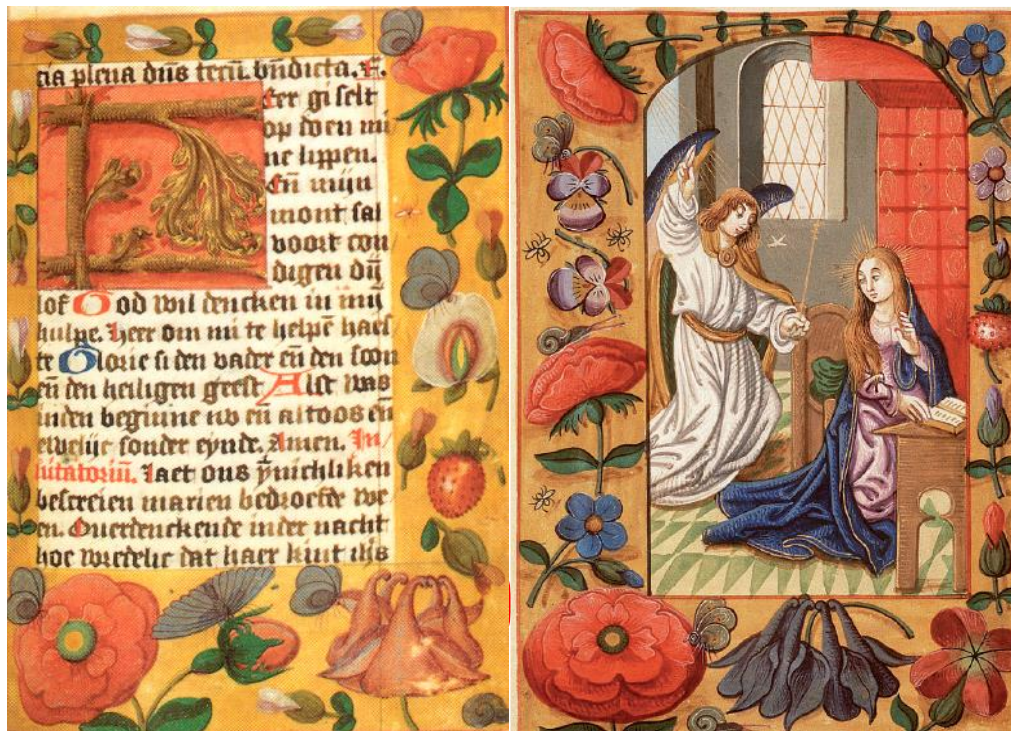 cia plena dn̄s tecū. bn̄dicta. F.
Heer gi selt
op doen mi
ne lippen.
Eñ mijn
mont sal
voort con
digen dij
lof God wil dencken in mij
hulpe. Heer om mi te helpē haes
te Glorie si den vader eñ den soon
eñ den heiligen geest Alst was
inden beginne nv eñ altoos eñ
ewelijc sonder eynde. Amen. In/
uitatoriū. Laet ons ỹnichliken
bescreien marien bedroefde we
en. Ouerdenckende inder nacht
hoe wredelic dat haer kint ihs